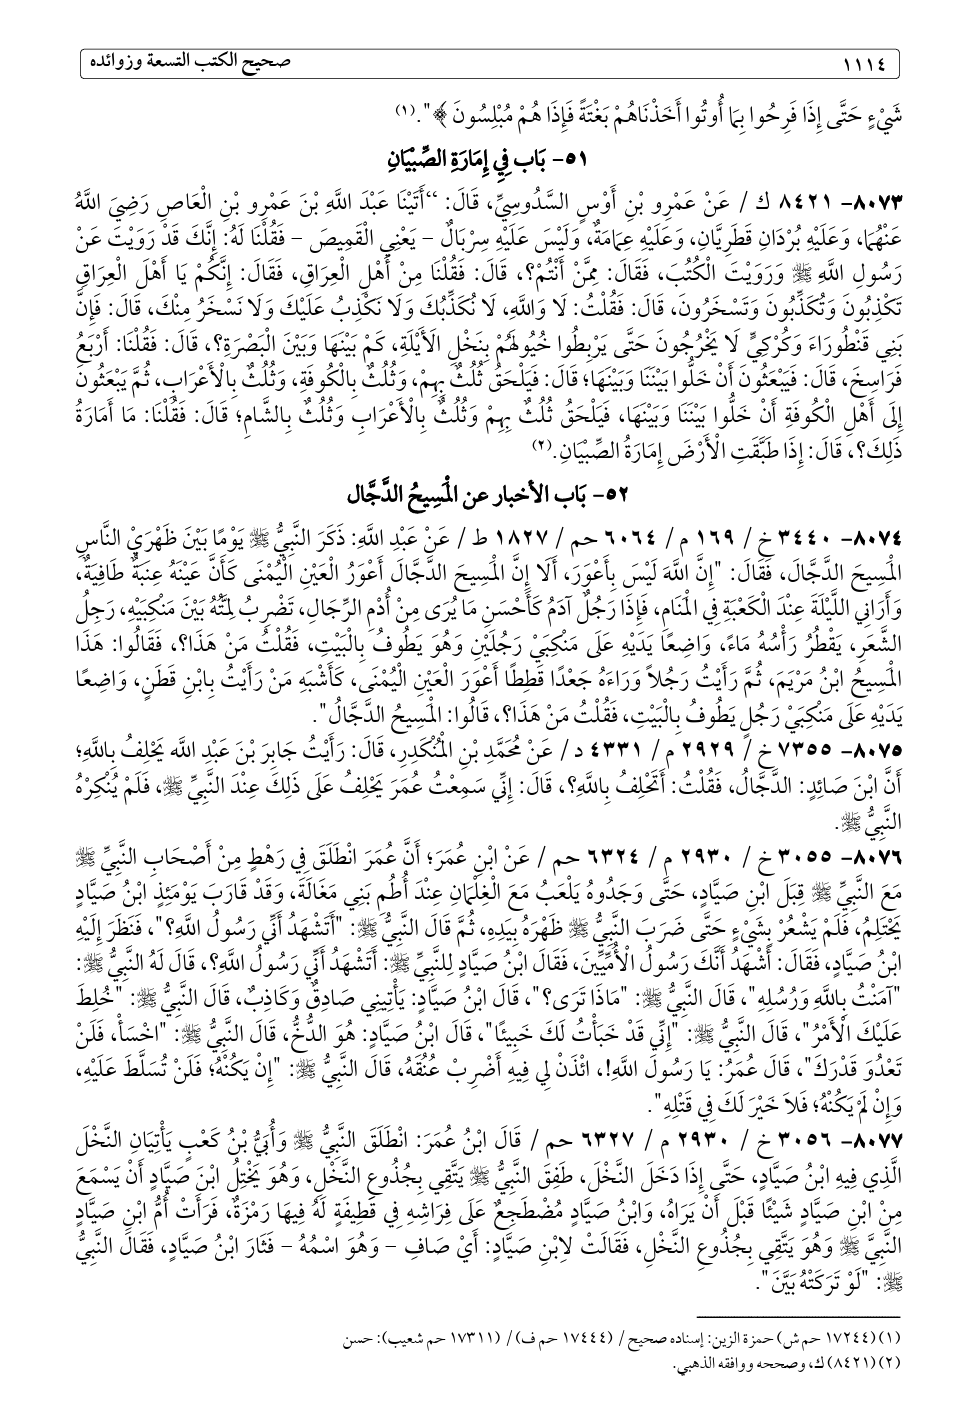 ١١١٤ صحيح الكتب التسعة وزوائده
شَيْءٍ حَتَّى إِذَا فَرِحُوا بِمَا أُوتُوا أَخَذْنَاهُمْ بَغْتَةً فَإِذَا هُمْ مُبْلِسُونَ ﴾". (١)
٥١- بَاب فِي إِمَارَةِ الصِّبْيَانِ
٨٠٧٣- ٨٤٢١ ك / عَنْ عَمْرِو بْنِ أَوْسٍ السَّدُوسِيِّ، قَالَ: "أَتَيْنَا عَبْدَ اللَّهِ بْنَ عَمْرِو بْنِ الْعَاصِ رَضِيَ اللَّهُ
عَنْهُمَا، وَعَلَيْهِ بُرْدَانِ قَطَرِيَّانِ، وَعَلَيْهِ عِمَامَةٌ، وَلَيْسَ عَلَيْهِ سِرْبَالٌ – يَعْنِي الْقَمِيصَ – فَقُلْنَا لَهُ: إِنَّكَ قَدْ رَوَيْتَ عَنْ
رَسُولِ اللَّهِ ﷺ وَرَوَيْتَ الْكُتُبَ، فَقَالَ: مِمَّنْ أَنْتُمْ؟، قَالَ: فَقُلْنَا مِنْ أَهْلِ الْعِرَاقِ، فَقَالَ: إِنَّكُمْ يَا أَهْلَ الْعِرَاقِ
تَكْذِبُونَ وَتُكَذِّبُونَ وَتَسْخَرُونَ، قَالَ: فَقُلْتُ: لَا وَاللَّهِ، لَا نُكَذِّبُكَ وَلَا نَكْذِبُ عَلَيْكَ وَلَا نَسْخَرُ مِنْكَ، قَالَ: فَإِنَّ
بَنِي قَنْطُورَاءَ وَكُرْكِيٍّ لَا يَخْرُجُونَ حَتَّى يَرْبِطُوا خُيُولَهُمْ بِنَخْلِ الْأَيْلَةِ، كَمْ بَيْنَهَا وَبَيْنَ الْبَصْرَةِ؟، قَالَ: فَقُلْنَا: أَرْبَعُ
فَرَاسِخَ، قَالَ: فَيَبْعَثُونَ أَنْ خَلُّوا بَيْنَنَا وَبَيْنَهَا؛ قَالَ: فَيَلْحَقُ ثُلُثٌ بِهِمْ، وَثُلُثٌ بِالْكُوفَةِ، وَثُلُثٌ بِالْأَعْرَابِ، ثُمَّ يَبْعَثُونَ
إِلَى أَهْلِ الْكُوفَةِ أَنْ خَلُّوا بَيْنَنَا وَبَيْنَهَا، فَيَلْحَقُ ثُلُثٌ بِهِمْ وَثُلُثٌ بِالْأَعْرَابِ وَثُلُثٌ بِالشَّامِ؛ قَالَ: فَقُلْنَا: مَا أَمَارَةُ
ذَلِكَ؟، قَالَ: إِذَا طَبَّقَتِ الْأَرْضَ إِمَارَةُ الصِّبْيَانِ. (٢)
٥٢- بَاب الأخبار عن الْمَسِيحُ الدَّجَّال
٨٠٧٤- ٣٤٤٠ خ / ١٦٩ م / ٦٠٦٤ حم / ١٨٢٧ ط / عَنْ عَبْدِ اللَّهِ: ذَكَرَ النَّبِيُّ ﷺ يَوْمًا بَيْنَ ظَهْرَيْ النَّاسِ
الْمَسِيحَ الدَّجَّالَ، فَقَالَ: "إِنَّ اللَّهَ لَيْسَ بِأَعْوَرَ، أَلَا إِنَّ الْمَسِيحَ الدَّجَّالَ أَعْوَرُ الْعَيْنِ الْيُمْنَى كَأَنَّ عَيْنَهُ عِنَبَةٌ طَافِيَةٌ،
وَأَرَانِي اللَّيْلَةَ عِنْدَ الْكَعْبَةِ فِي الْمَنَامِ، فَإِذَا رَجُلٌ آدَمُ كَأَحْسَنِ مَا يُرَى مِنْ أُدْمِ الرِّجَالِ، تَضْرِبُ لِمَّتُهُ بَيْنَ مَنْكِبَيْهِ، رَجِلُ
الشَّعَرِ، يَقْطُرُ رَأْسُهُ مَاءً، وَاضِعًا يَدَيْهِ عَلَى مَنْكِبَيْ رَجُلَيْنِ وَهُوَ يَطُوفُ بِالْبَيْتِ، فَقُلْتُ مَنْ هَذَا؟، فَقَالُوا: هَذَا
الْمَسِيحُ ابْنُ مَرْيَمَ، ثُمَّ رَأَيْتُ رَجُلاً وَرَاءَهُ جَعْدًا قَطِطًا أَعْوَرَ الْعَيْنِ الْيُمْنَى، كَأَشْبَهِ مَنْ رَأَيْتُ بِابْنِ قَطَنٍ، وَاضِعًا
يَدَيْهِ عَلَى مَنْكِبَيْ رَجُلٍ يَطُوفُ بِالْبَيْتِ، فَقُلْتُ مَنْ هَذَا؟، قَالُوا: الْمَسِيحُ الدَّجَّالُ".
٨٠٧٥- ٧٣٥٥ خ / ٢٩٢٩ م / ٤٣٣١ د / عَنْ مُحَمَّدِ بْنِ الْمُنْكَدِرِ، قَالَ: رَأَيْتُ جَابِرَ بْنَ عَبْدِ الله يَحْلِفُ بِاللَّهِ؛
أَنَّ ابْنَ صَائِدٍ: الدَّجَّالُ، فَقُلْتُ: أَتَحْلِفُ بِاللَّهِ؟، قَالَ: إِنِّي سَمِعْتُ عُمَرَ يَحْلِفُ عَلَى ذَلِكَ عِنْدَ النَّبِيِّ ﷺ، فَلَمْ يُنْكِرْهُ
النَّبِيُّ ﷺ.
٨٠٧٦- ٣٠٥٥ خ / ٢٩٣٠ م / ٦٣٢٤ حم / عَنْ ابْنِ عُمَرَ؛ أَنَّ عُمَرَ انْطَلَقَ فِي رَهْطٍ مِنْ أَصْحَابِ النَّبِيِّ ﷺ
مَعَ النَّبِيِّ ﷺ قِبَلَ ابْنِ صَيَّادٍ، حَتَّى وَجَدُوهُ يَلْعَبُ مَعَ الْغِلْمَانِ عِنْدَ أُطُمِ بَنِي مَغَالَةَ، وَقَدْ قَارَبَ يَوْمَئِذٍ ابْنُ صَيَّادٍ
يَحْتَلِمُ، فَلَمْ يَشْعُرْ بِشَيْءٍ حَتَّى ضَرَبَ النَّبِيُّ ﷺ ظَهْرَهُ بِيَدِهِ، ثُمَّ قَالَ النَّبِيُّ ﷺ: "أَتَشْهَدُ أَنِّي رَسُولُ اللَّهِ؟"، فَنَظَرَ إِلَيْهِ
ابْنُ صَيَّادٍ، فَقَالَ: أَشْهَدُ أَنَّكَ رَسُولُ الْأُمِّيِّينَ، فَقَالَ ابْنُ صَيَّادٍ لِلنَّبِيِّ ﷺ: أَتَشْهَدُ أَنِّي رَسُولُ اللَّهِ؟، قَالَ لَهُ النَّبِيُّ ﷺ:
"آمَنْتُ بِاللَّهِ وَرُسُلِهِ"، قَالَ النَّبِيُّ ﷺ: "مَاذَا تَرَى؟"، قَالَ ابْنُ صَيَّادٍ: يَأْتِينِي صَادِقٌ وَكَاذِبٌ، قَالَ النَّبِيُّ ﷺ: "خُلِطَ
عَلَيْكَ الْأَمْرُ"، قَالَ النَّبِيُّ ﷺ: "إِنِّي قَدْ خَبَأْتُ لَكَ خَبِيئًا"، قَالَ ابْنُ صَيَّادٍ: هُوَ الدُّخُّ، قَالَ النَّبِيُّ ﷺ: "اخْسَأْ، فَلَنْ
تَعْدُوَ قَدْرَكَ"، قَالَ عُمَرُ: يَا رَسُولَ اللَّهِ!، ائْذَنْ لِي فِيهِ أَضْرِبْ عُنُقَهُ، قَالَ النَّبِيُّ ﷺ: "إِنْ يَكُنْهُ؛ فَلَنْ تُسَلَّطَ عَلَيْهِ،
وَإِنْ لَمْ يَكُنْهُ؛ فَلاَ خَيْرَ لَكَ فِي قَتْلِهِ".
٨٠٧٧- ٣٠٥٦ خ / ٢٩٣٠ م / ٦٣٢٧ حم / قَالَ ابْنُ عُمَرَ: انْطَلَقَ النَّبِيُّ ﷺ وَأُبَيُّ بْنُ كَعْبٍ يَأْتِيَانِ النَّخْلَ
الَّذِي فِيهِ ابْنُ صَيَّادٍ، حَتَّى إِذَا دَخَلَ النَّخْلَ، طَفِقَ النَّبِيُّ ﷺ يَتَّقِي بِجُذُوعِ النَّخْلِ، وَهُوَ يَخْتِلُ ابْنَ صَيَّادٍ أَنْ يَسْمَعَ
مِنْ ابْنِ صَيَّادٍ شَيْئًا قَبْلَ أَنْ يَرَاهُ، وَابْنُ صَيَّادٍ مُضْطَجِعٌ عَلَى فِرَاشِهِ فِي قَطِيفَةٍ لَهُ فِيهَا رَمْزَةٌ، فَرَأَتْ أُمُّ ابْنِ صَيَّادٍ
النَّبِيَّ ﷺ وَهُوَ يَتَّقِي بِجُذُوعِ النَّخْلِ، فَقَالَتْ لِابْنِ صَيَّادٍ: أَيْ صَافِ – وَهُوَ اسْمُهُ – فَثَارَ ابْنُ صَيَّادٍ، فَقَالَ النَّبِيُّ
ﷺ: "لَوْ تَرَكَتْهُ بَيَّنَ".
(١) (١٧٢٤٤ حم ش) حمزة الزين: إسناده صحيح / (١٧٤٤٤ حم ف) / (١٧٣١١ حم شعيب): حسن
(٢) (٨٤٢١) ك، وصححه ووافقه الذهبي.